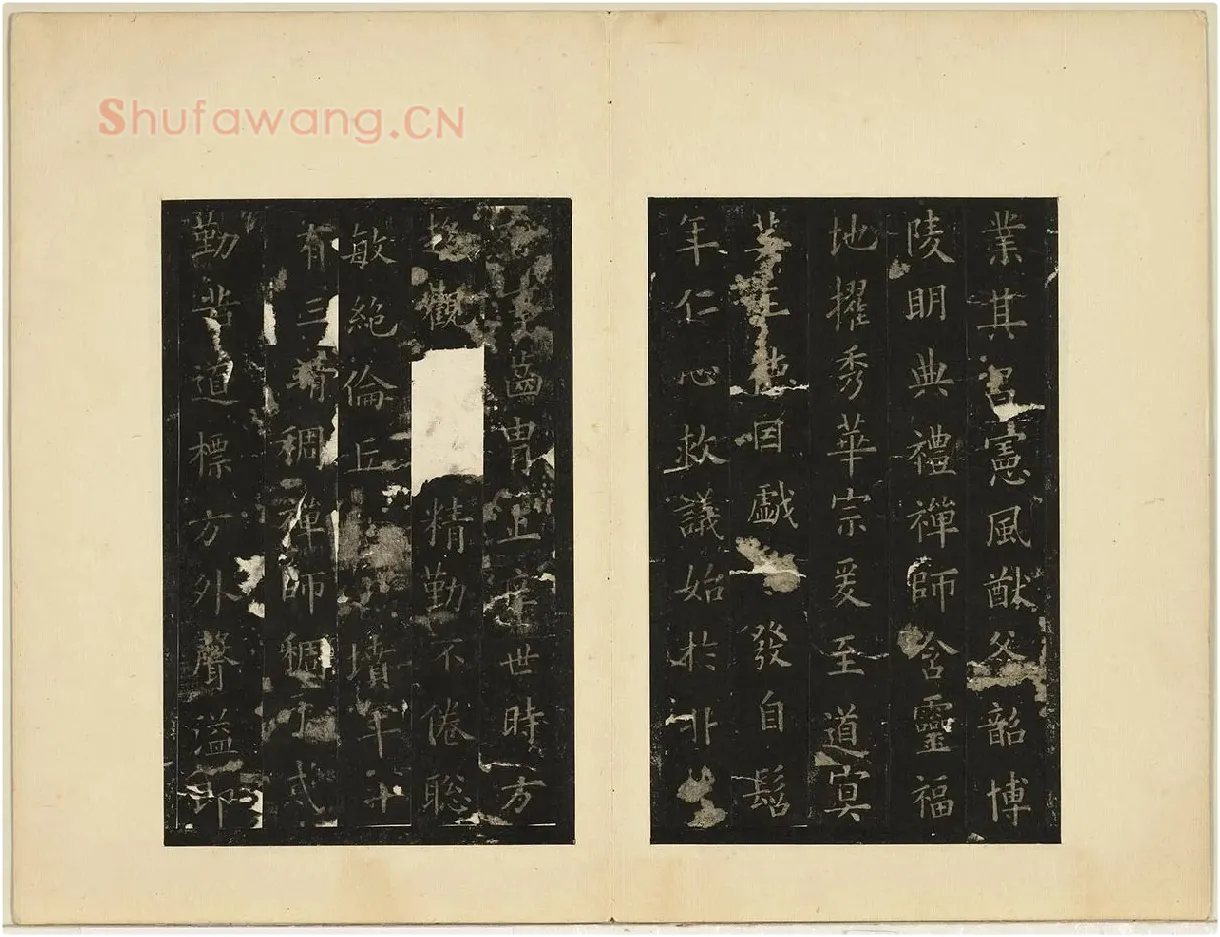 Shufawang.CN
業其呂憲風猷父韶博
陵明典禮禪師含靈福
地擢秀華宗爰至道冥
其性德因戲發自髫
年仁心救議始於非
齒胄上庠世時方
觀精勤不倦聡
敏絶倫丘墳年十
有三背稠禪師稠弌
勤苦道標方外聲溢